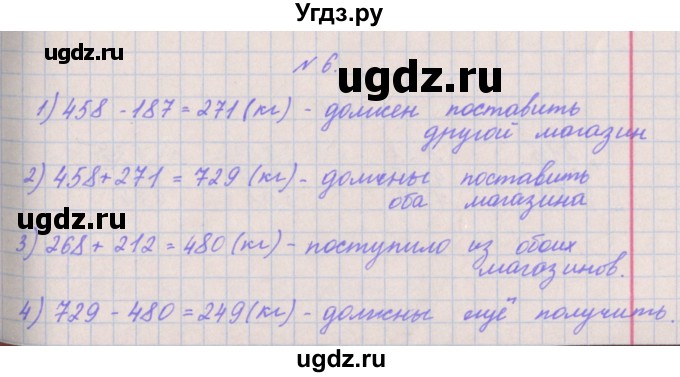 Угдз.ру
ugdz.ru
№ 6.
ugdz.ru
1) 458 - 187 = 271 (кг) - должен поставить
другой магазин
ugdz.ru
2) 458 + 271 = 729 (кг) - должны поставить
оба магазина
ugdz.ru
ugdz.ru
3) 268 + 212 = 480 (кг) - поступило из обоих
магазинов.
ugdz.ru
4) 729 - 480 = 249 (кг) - должны ещё получить.
ugdz.ru